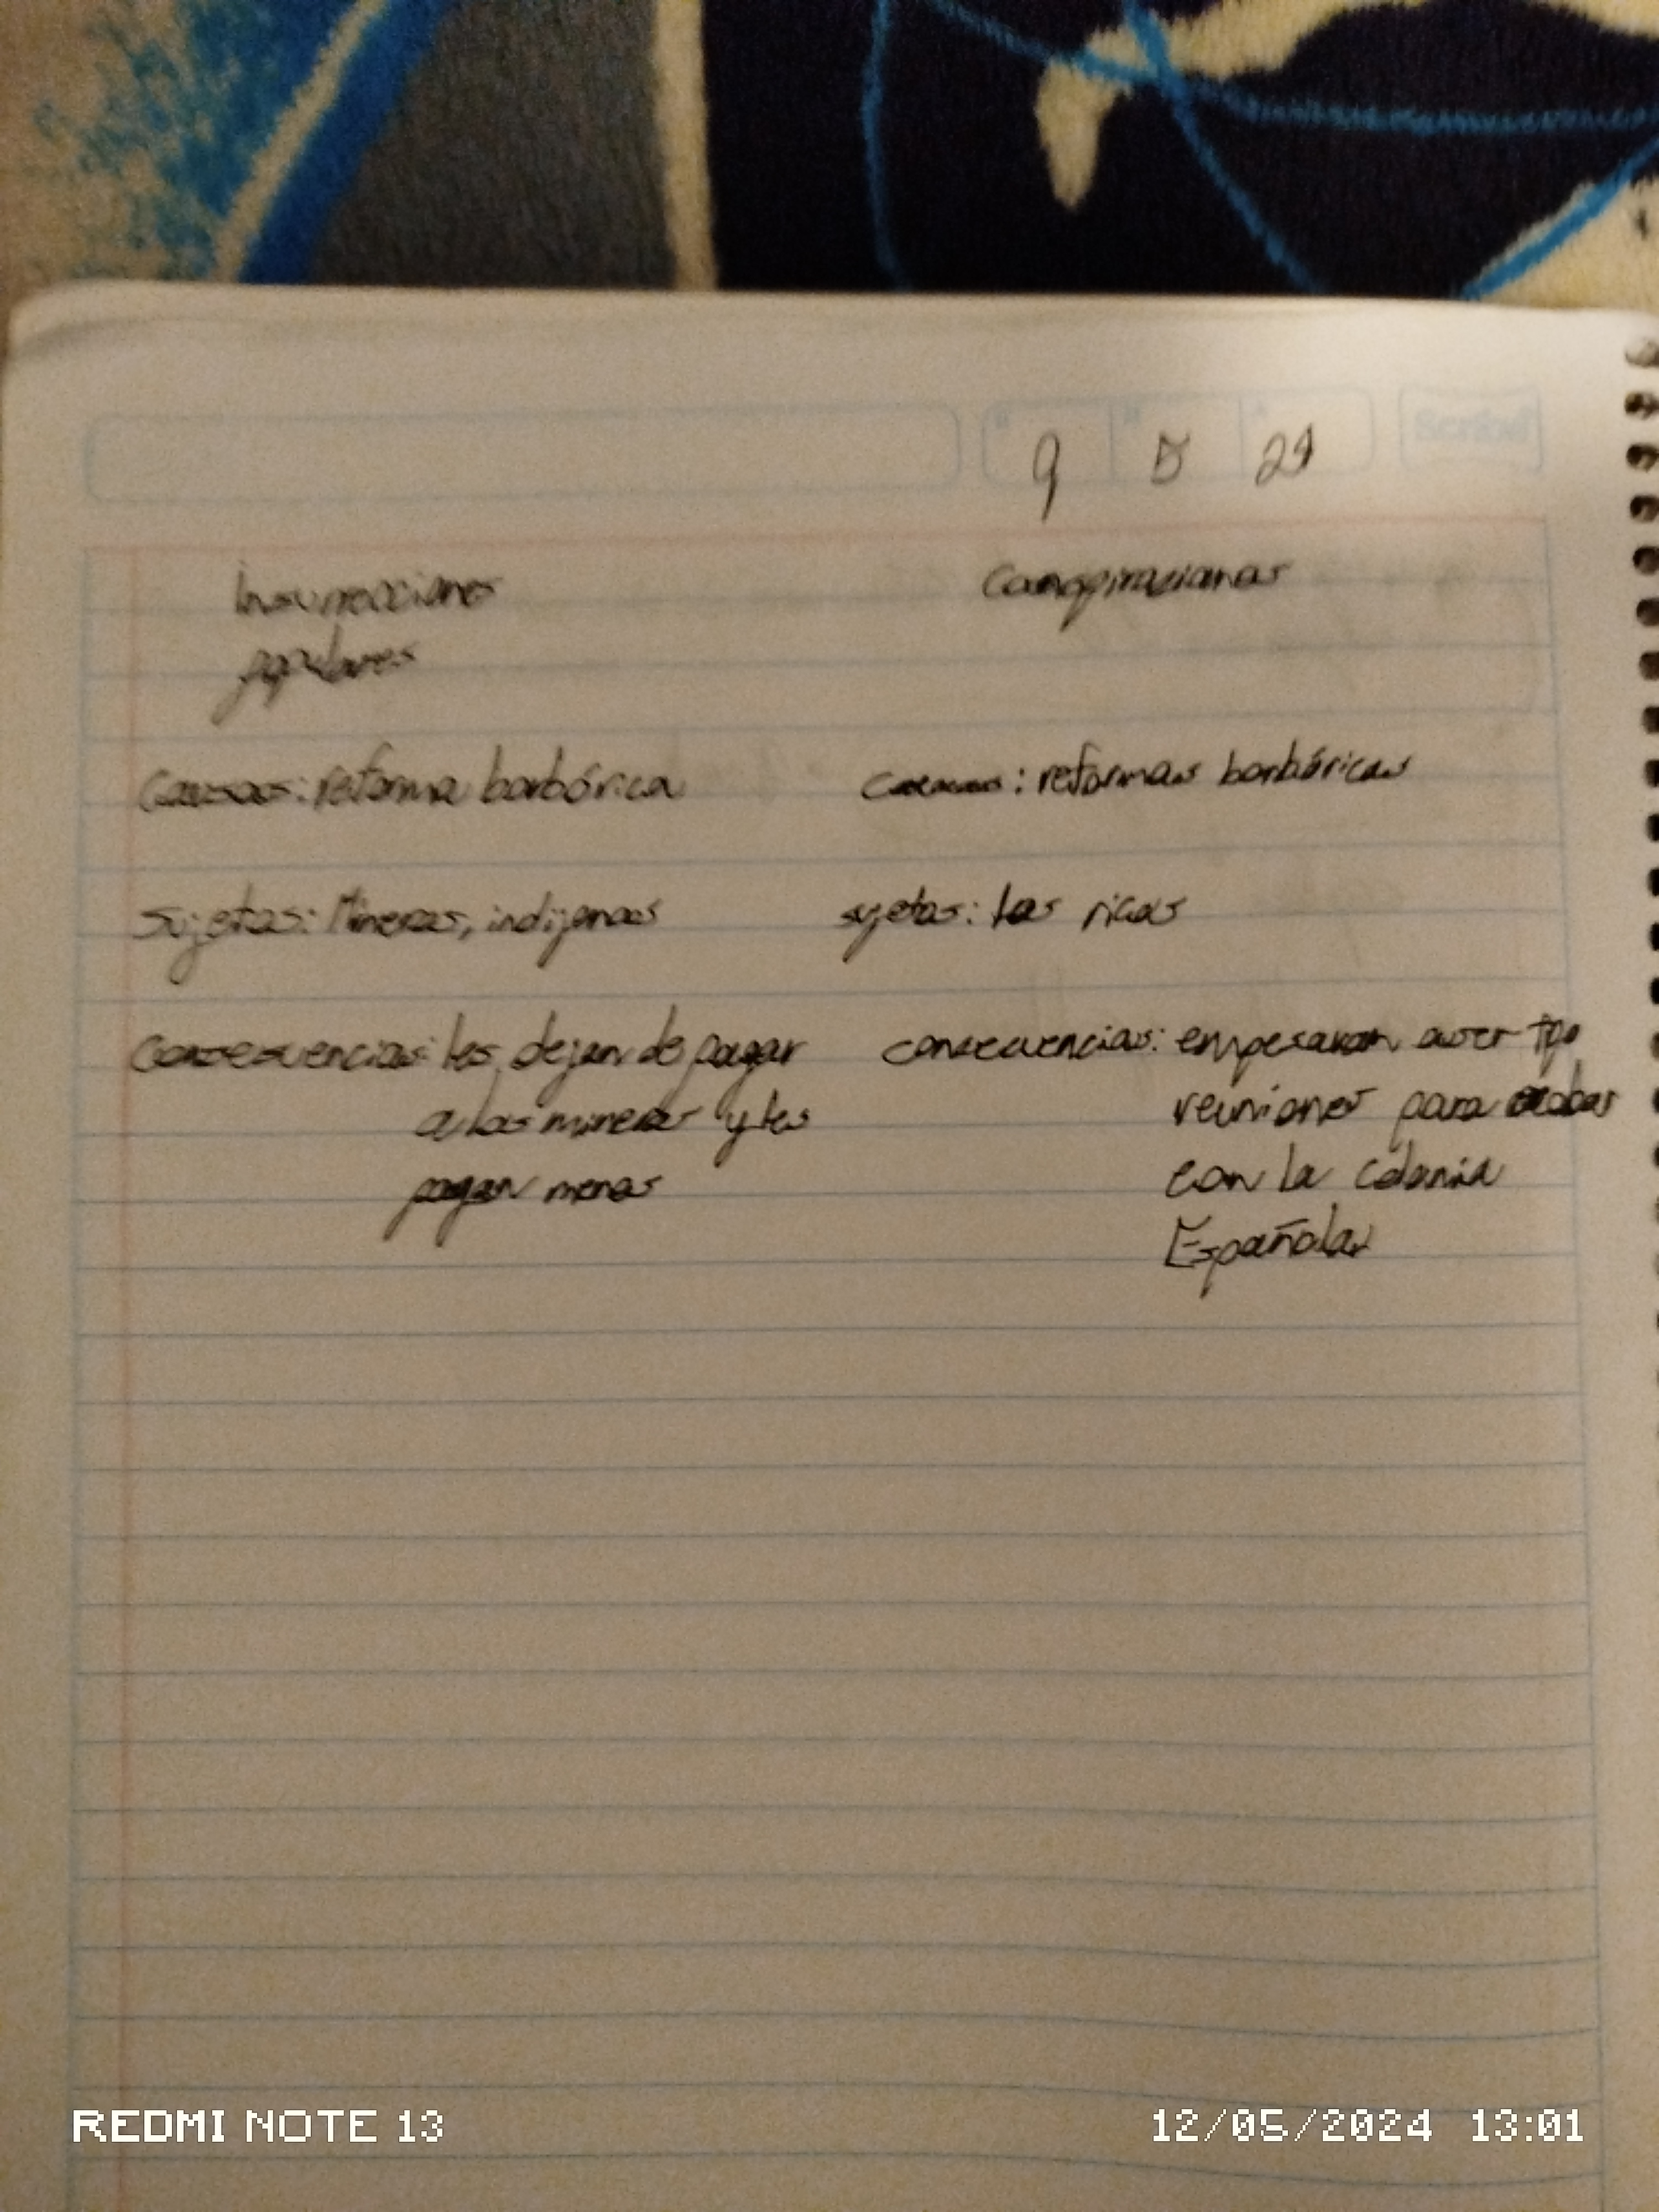 9 5 24
Insurrecciones
populares
Causas: reforma borbórica
Sujetos: Mineros, indígenas
Consecuencias: les dejan de pagar
a los mineros y les
pagan menos
Conspiraciones
causas: reformas borbóricas
sujetos: los ricos
consecuencias: empesaron aser tipo
reuniones para
con la colonia
Española
REDMI NOTE 13
12/05/2024 13:01